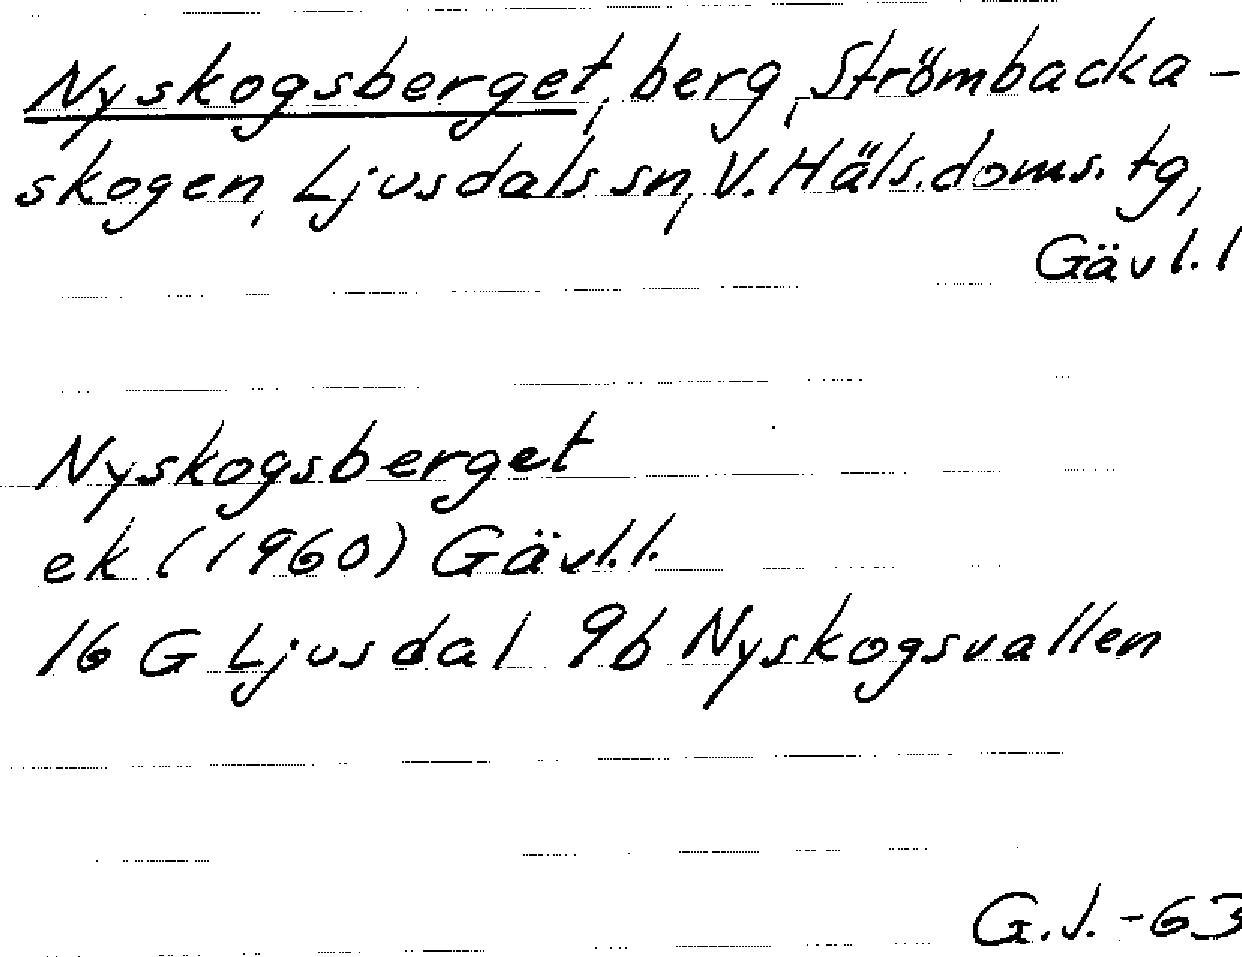 Nyskogsberget, berg, Strömbacka-
skogen, Ljusdals sn, V. Häls. doms. tg,
Gävl. l
Nyskogsberget
ek (1960) Gävl.l.
16 G Ljusdal 9b Nyskogsvallen
G.J. -63